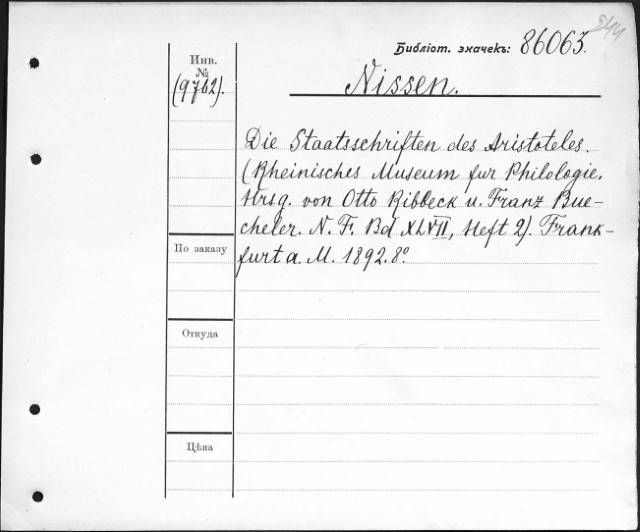 Библіот. значекъ: 86063.
Инв.
№
(9762).
Nissen.
Die Staatsschriften des Aristoteles.
(Rheinisches Museum fur Philologie.
Hrsg. von Otto Ribbeck u. Franz Bue-
cheler. N. F. Bd XLVII, Heft 2). Frank-
furt a. M. 1892. 8°.
По заказу
Откуда
Цѣна